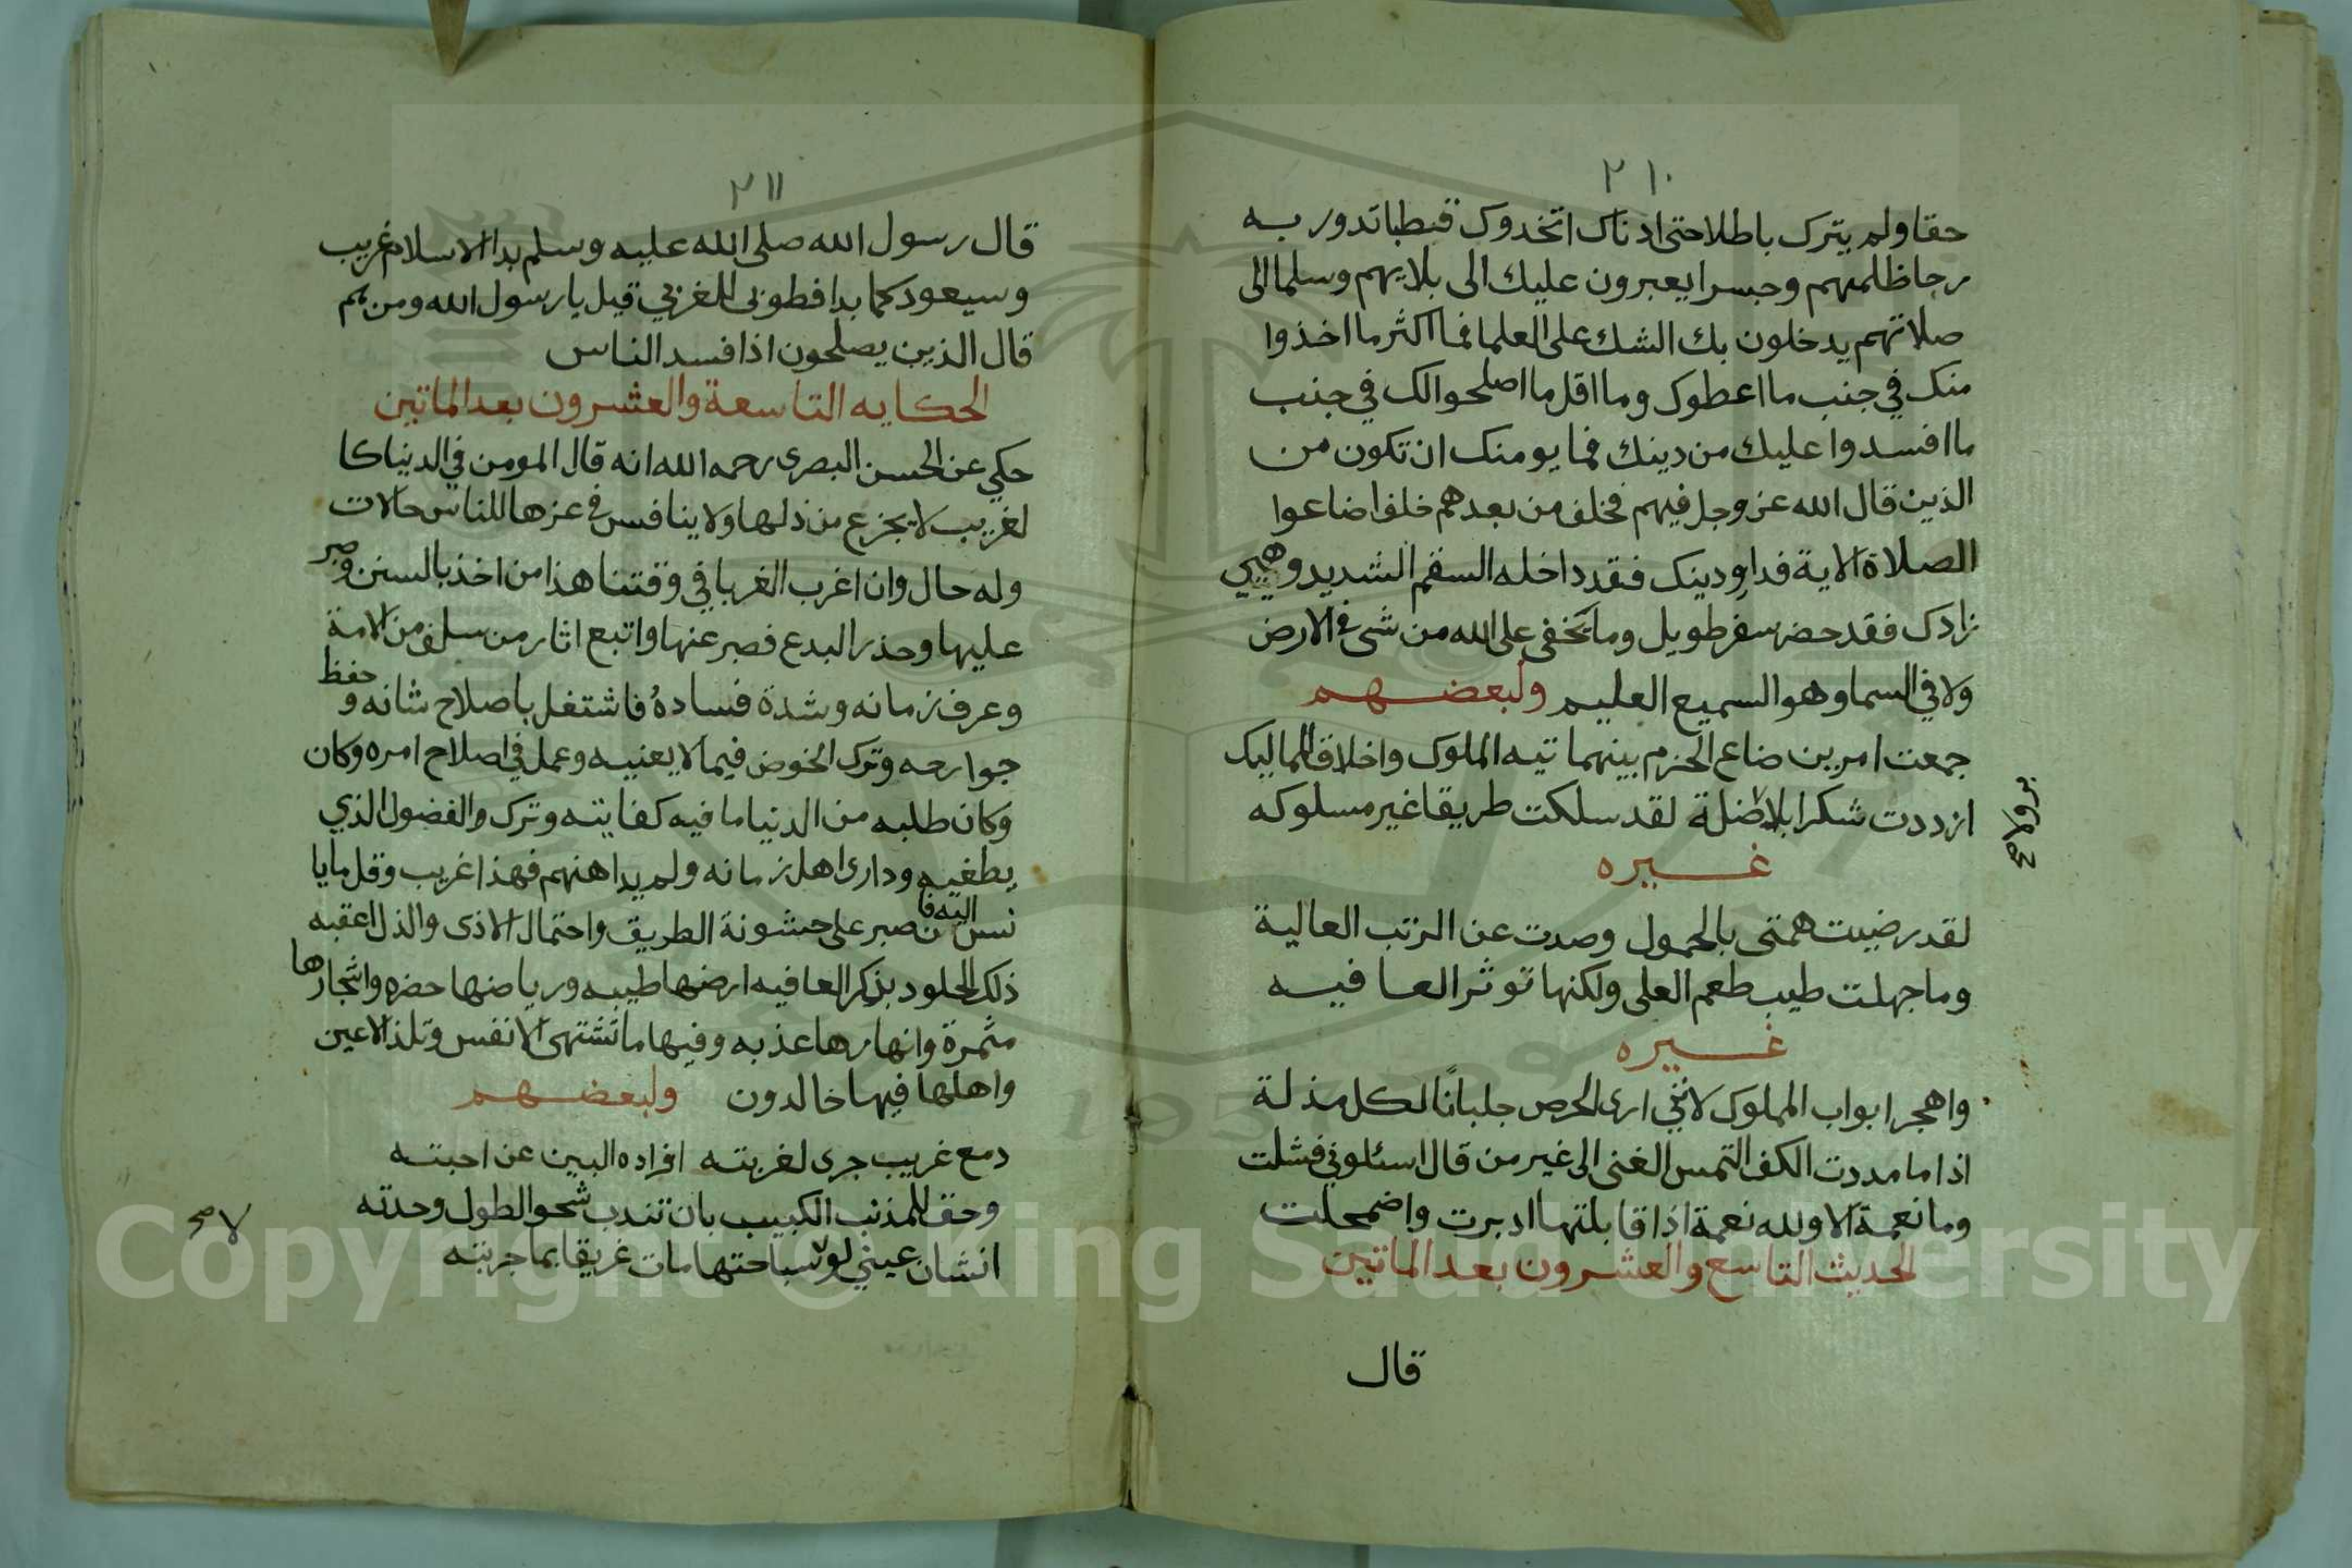 ٢١٠
حقا ولم يترك باطلا حتى ادناك اتخدوك قبطبا تدور به
رحا ظلمهم وجسرا يعبرون عليك الى بلايهم وسلما الى
صلاتهم يدخلون بك الشك على العلما فما اكثر ما اخذوا
منك في جنب ما اعطوك وما اقل ما اصلحوا لك في جنب
ما افسدوا عليك من دينك فما يومنك ان تكون من
الذين قال الله عز وجل فيهم فخلف من بعدهم خلف اضاعوا
الصلاة الاية فداو دينك فقد داخله السقم الشديد وهيي
زادك فقد حضر سفر طويل وما يخفى على الله من شى في الارض
ولا في السما وهو السميع العليم ولبعضهم
جمعت امرين ضاع الحزم بينهما تيه الملوك واخلاق المماليك
ازددت شكرا بلا ضلة لقد سلكت طريقا غير مسلوكه
غيره
لقد رضيت همتى بالخمول وصدت عن الرتب العالية
وما جهلت طيب طعم العلى ولكنها توثر العافيه
غيره
واهجر ابواب الملوك لانني ارى الحرص جلبانا لكل مذلة
اذا ما مددت الكف التمس الغنى الى غير من قال اسئلوني فشلت
وما نعمة الا ولله نعمة اذا قابلتها ادبرت واضمحلت
الحديث التاسع والعشرون بعد الماتين
قال
٢١١
قال رسول الله صلى الله عليه وسلم بدا الاسلام غريب
وسيعود كما بدا فطوبى للغربي قيل يا رسول الله ومن هم
قال الذين يصلحون اذا فسد الناس
الحكايه التاسعة والعشرون بعد الماتين
حكي عن الحسن البصرى رحمه الله انه قال المومن في الدنيا كا
لغريب لا يجزع من ذلها ولا ينافس في عزها للناس حالات
وله حال وان اغرب الغربا في وقتنا هذا من اخذ بالسنن وصبر
عليها وحذر البدع فصبر عنها واتبع اثار من سلف من الامة
وعرف زمانه وشدة فساده فاشتغل باصلاح شانه وحفظ
جوارحه وترك الخوض فيما لا يعنيه وعمل في اصلاح امره وكان
وكان طلبه من الدنيا ما فيه كفايته وترك والفضول الذي
يطغيه ودارى اهل زمانه ولم يداهنهم فهذا غريب وقل ما يا
نس اليه فان صبر على خشونة الطريق واحتمال الاذى والذل اعقبه
ذلك الخلود بذكر العافيه ارضها طيبه ورياضها خضره واشجارها
مثمرة وانهارها عذبه وفيها ما تشتهى الانفس وتلذ الاعين
واهلها فيها خالدون ولبعضهم
دمع غريب جرى لغربته افراده البين عن احبته
وحق للمذنب الكييب بان تندب شحوا لطول وحدته
انشان عيني لولا سباحتها مات غريقا بما جربته
لا صح